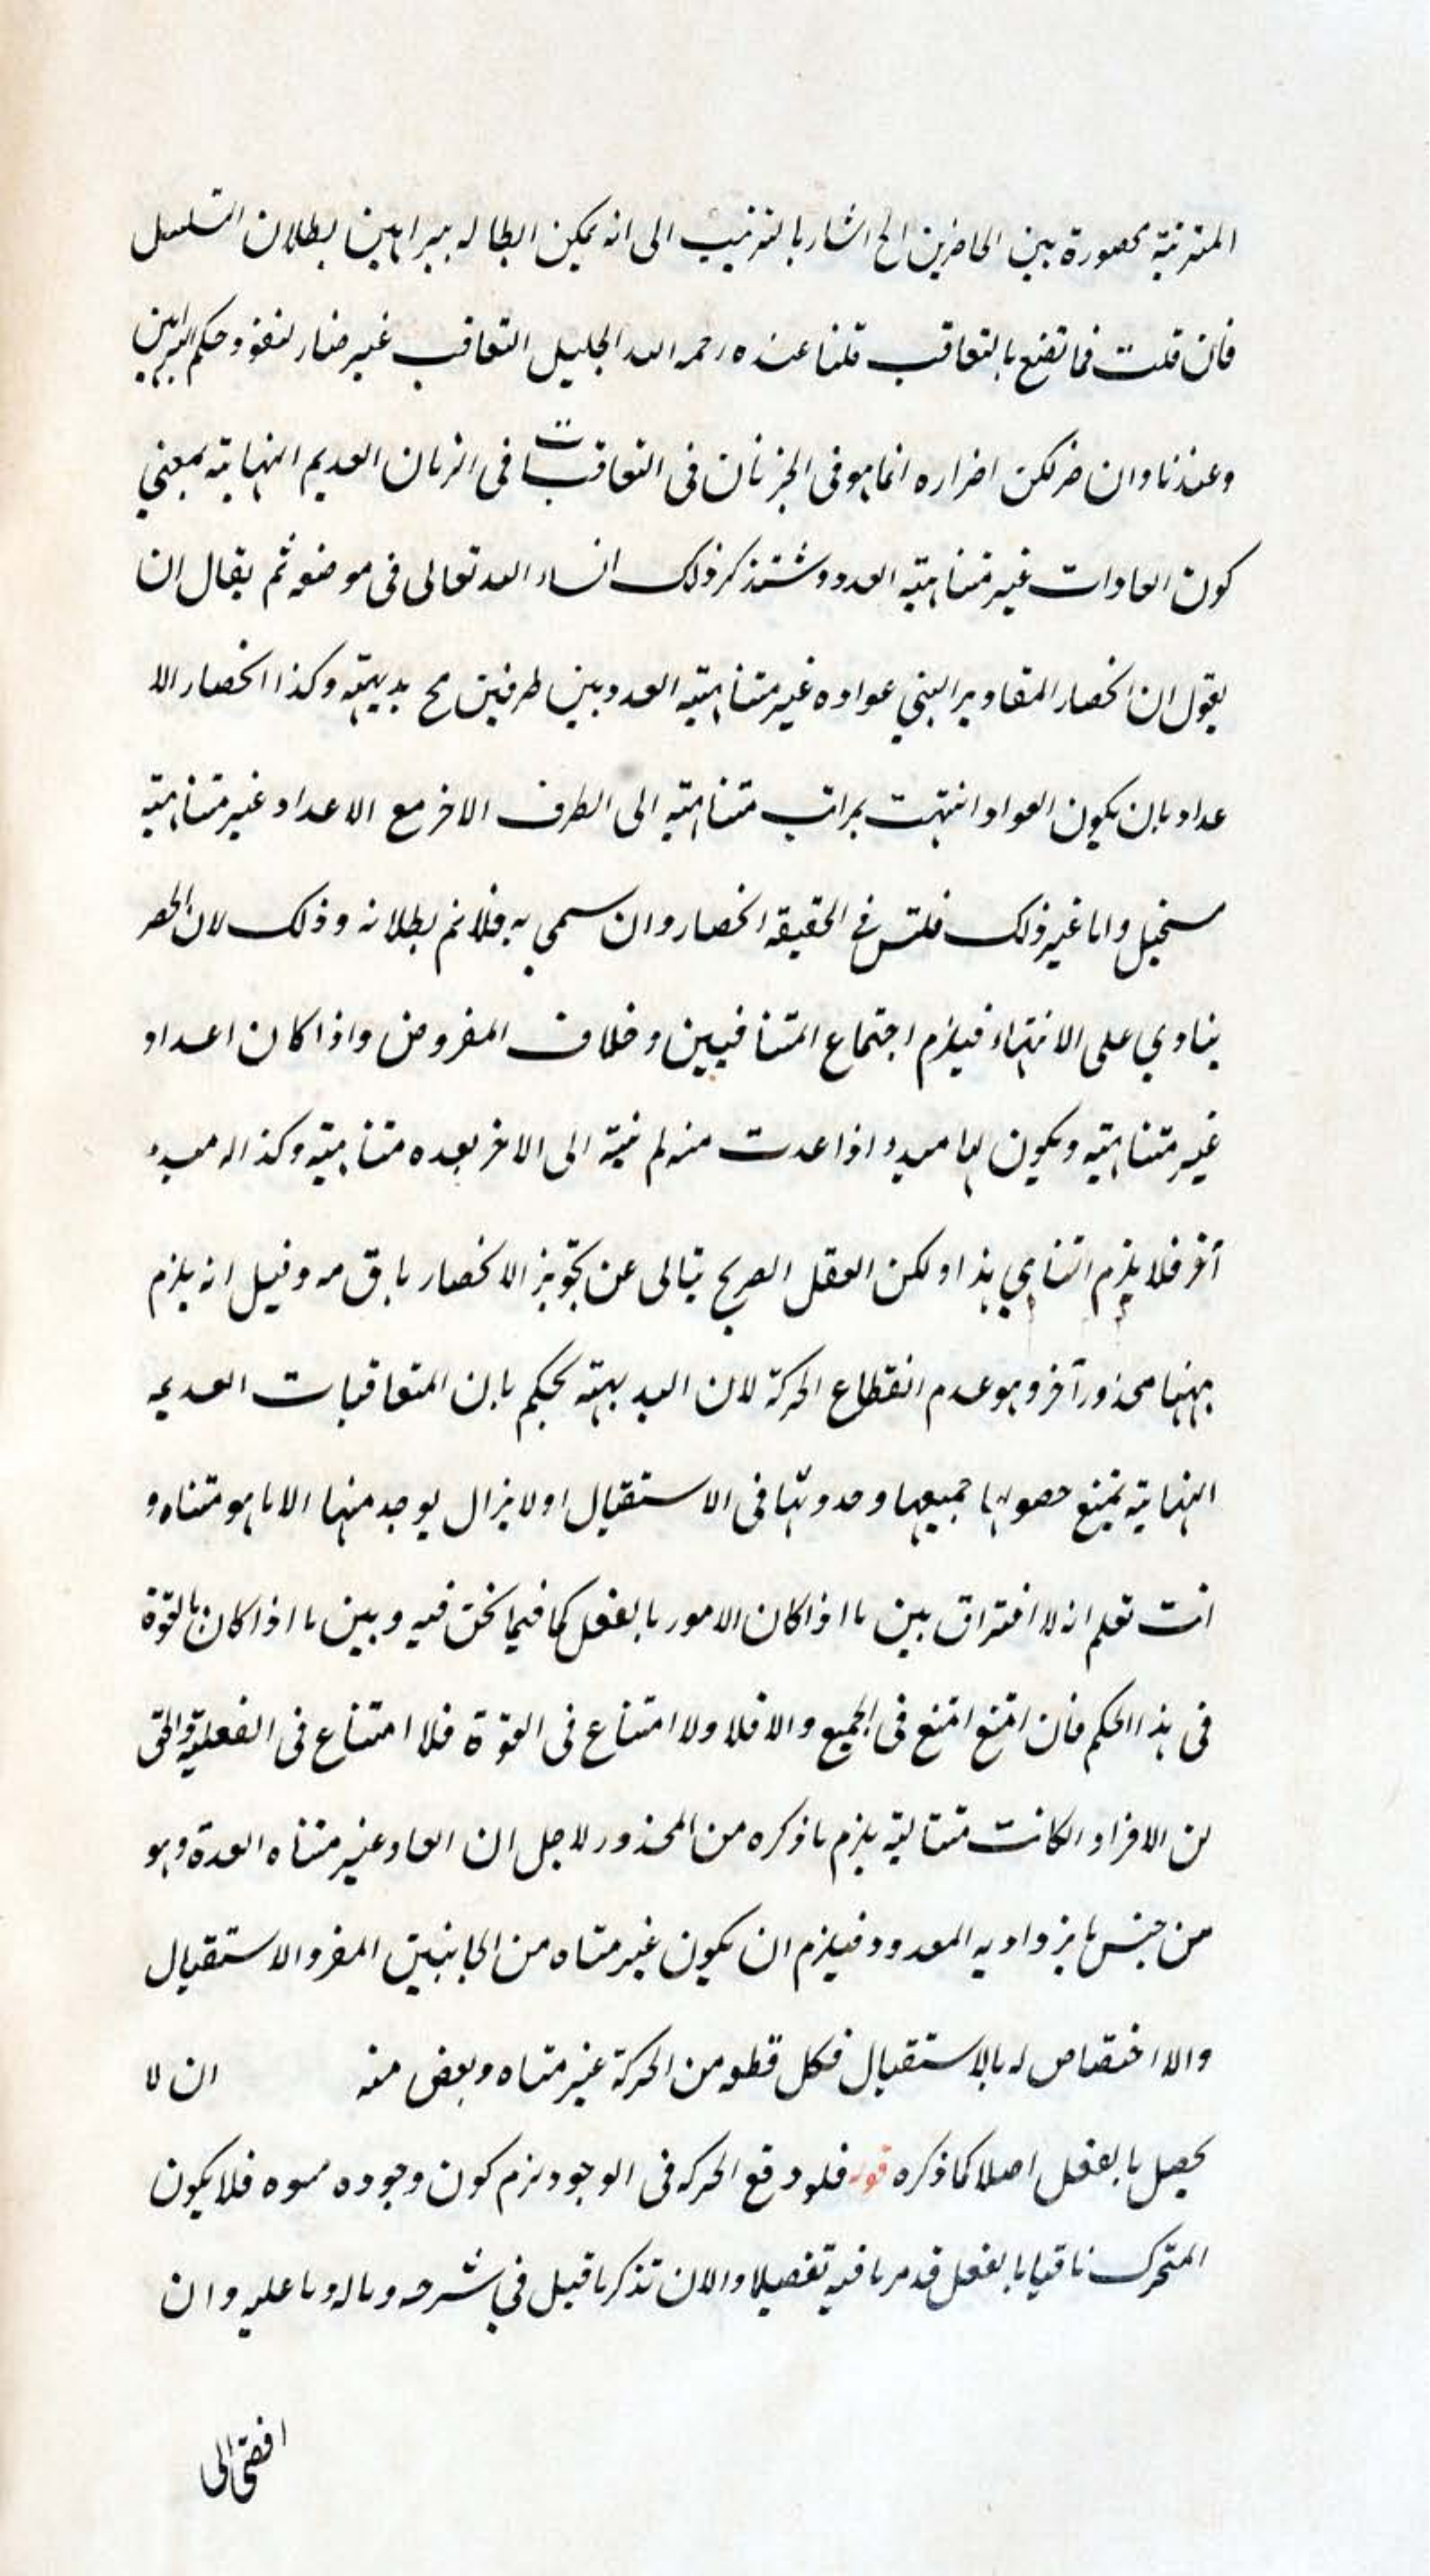 المترتبة محصورة بين الحاضرين الخ اشار بالترتيب الى انه يمكن ابطاله ببراهين بطلان التسلسل
فان قلت فما تصنع بالتعاقب قلنا عنده رحمه الله الجليل التعاقب غير ضار لنفوذ حكم البراهين
وعندنا وان ضر لكن اضراره انما هو في الجزئان في التعاقبات في الزمان العديم النهاية بمعنى
كون العادات غير متناهية العدد وستذكر ذلك انشاء الله تعالى في موضعه ثم يقال ان
يقول ان انحصار المقادير البنى عواده غير متناهية العدد بين طرفين مح بديهة وكذا انحصار الا
عداد بان يكون العواد انتهت بمراتب متناهية الى الطرف الاخر مع الاعداد غير متناهية
مستحيل واما غير ذلك فليس في الحقيقة انحصار وان سمى به فلانم بطلانه وذلك لان الحصر
ينادي على الانتهاء فيلزم اجتماع المتنافيين وخلاف المفروض واذا كان اعداد
غير متناهية ويكون لها مبدء اذا عدت منه لم ينته الى الاخر بعده متناهية وكذا له مبدء
آخر فلا يلزم التناهي هذا ولكن العقل الصريح يتابى عن تجويز الانحصار باق مه وقيل انه يلزم
ههنا محذور آخر وهو عدم انقطاع الحركة لان البديهة تحكم بان المتعاقبات العديمة
النهاية يمتنع حصولها جميعها وحدوثها في الاستقبال اولا يزال يوجد منها الا ما هو متناه و
انت تعلم انه لا افتراق بين ما اذا كان الامور بالفعل كما فيما نحن فيه وبين ما اذا كان بالقوة
في هذا الحكم فان امتنع امتنع في الجميع والا فلا ولا امتناع في القوة فلا امتناع في الفعلية والحق
ان الافراد الكانت متتالية يلزم ما ذكره من المحذور لاجل ان العاد غير متناه العدة وهو
من جنس ما يزداد به المعدود فيلزم ان يكون غير متناه من الجانبين المفر والاستقبال
والا اختصاص له بالاستقبال فكل قطعة من الحركة غير متناه وبعض منه ان لا
يحصل بالفعل اصلا كما ذكره قوله فلو وقع الحركة في الوجود لزم كون وجوده فلا يكون
المتحرك باقيا بالفعل قد مر ما فيه تفصيلا والان تذكر ما قيل في شرحه وماله وما عليه وان